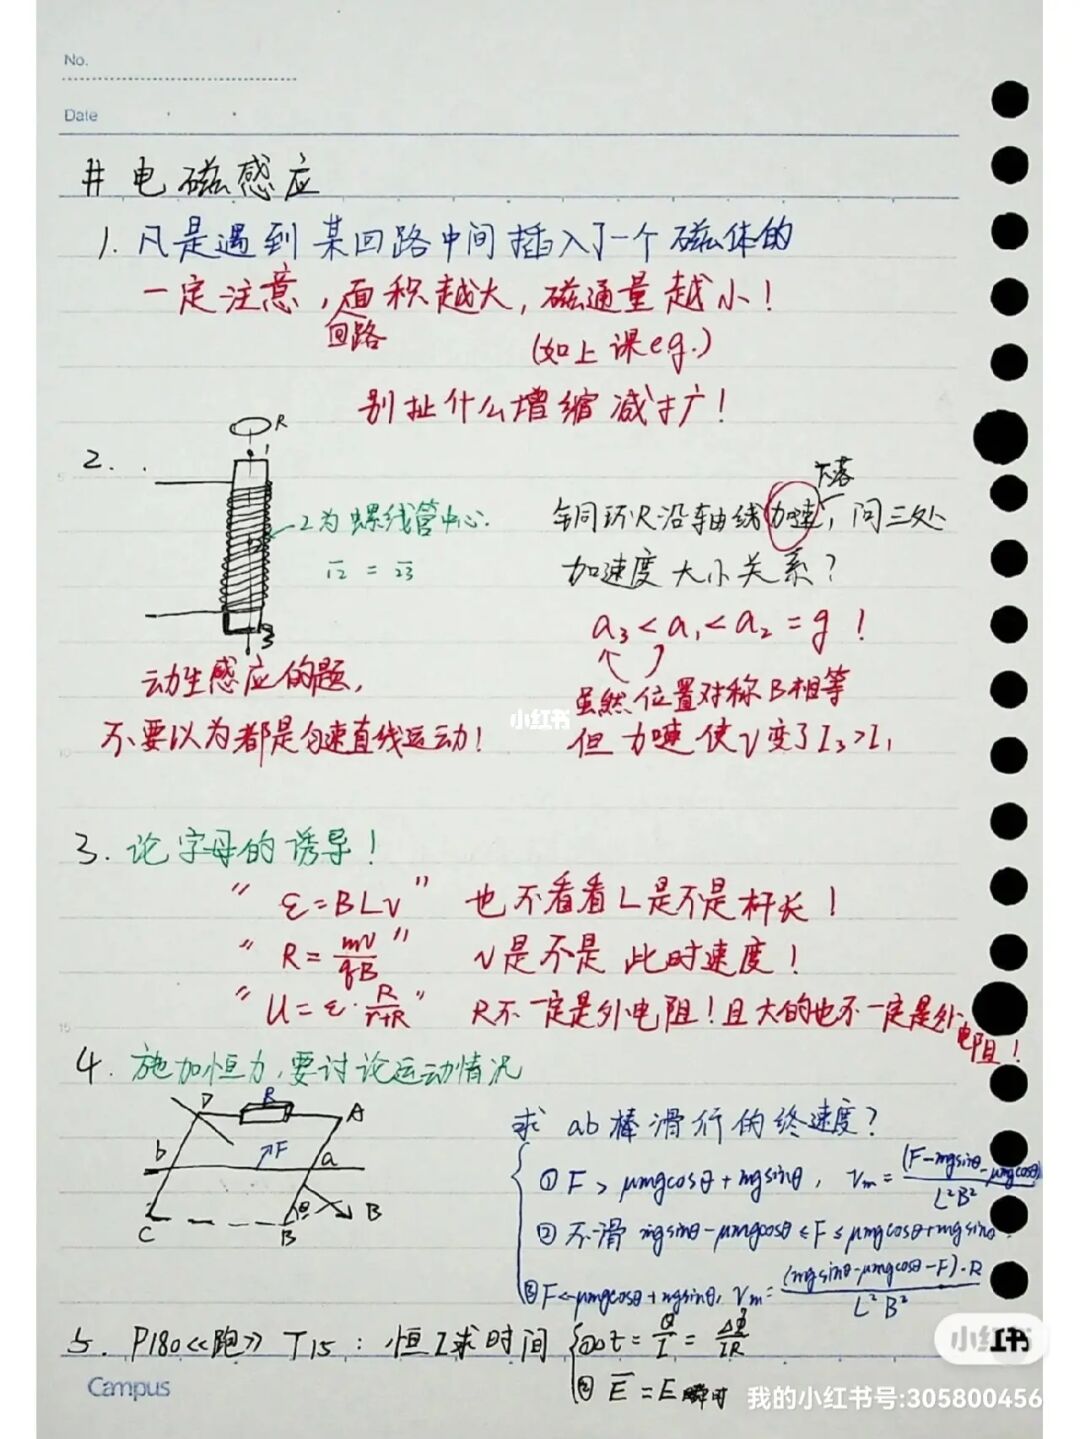 No.
Date
# 电磁感应
1. 凡是遇到某回路中间插入了一个磁体的
一定注意，面积越大，磁通量越小！
回路
(如上课eg.)
别扯什么增缩减扩！
R
1
2.
2为螺线管中心.
12 = 23
3
铜环R沿轴线加速，问三处
下落
加速度大小关系？
a₃ < a₁ < a₂ = g !
虽然位置对称B相等
但加速使v变了I₃>I₁
动生感应的题，
不要以为都是匀速直线运动！
小红书
3. 论字母的诱导！
"ε=BLv" 也不看看L是不是杆长！
"R=mv/qB" v是不是此时速度！
"U=ε·R/(r+R)" R不一定是外电阻！且大的也不一定是外电阻！
4. 施加恒力，要讨论运动情况
D R A
b F a
θ B
C B
求ab棒滑行的终速度？
① F > μmgcosθ+mgsinθ, vₘ=(F-mgsinθ-μmgcosθ)/L²B²
② 不滑 mgsinθ-μmgcosθ≤F≤μmgcosθ+mgsinθ
③ F<-μmgcosθ+mgsinθ, vₘ=(mgsinθ-μmgcosθ-F)·R/L²B²
5. P180《跑》T15：恒I求时间 ①Δt=Q/I=ΔΦ/IR
② E̅=E瞬时
Campus
小红书
我的小红书号:305800456